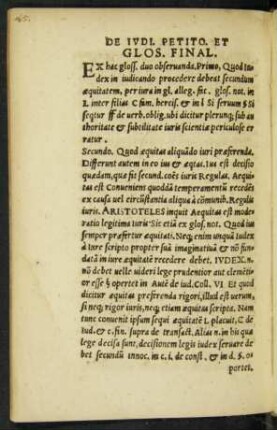 DE IVDI. PETITO. ET
GLOS. FINAL.
EX hac gloss. duo obseruanda. Primo, Quod Iudex
in iudicando procedere debeat secundum
æquitatem, per iura in gl. alleg. fac. glos. not. in
l. inter filias C fam. hercis. & in l Si seruum § Si
seqtur ff de uerb. oblig. ubi dicitur plerunq; sub authoritate
& subtilitate iuris scientiæ periculose erratur.
Secundo. Quod æquitas aliquādo iuri præferenda.
Differunt autem in eo ius & æqtas. Ius est decisio
quædam, quæ fit secund. coēt iuris Regulas. Aequitas
est Conueniens quoddā temperamentū recedēs
ex causa uel circūstantia aliqua à cōmunib. Regulis
iuris. ARISTOTELES inquit Aequitas est moderatio
legitima iuris Sic etiā ex glos. not. Quod ius
semper præfertur æquitati. Neq; enim unquā iudex
à iure scripto propter suā imaginatiuā & nō fundatā
in iure æquitatē recedere debet. IVDEX. n.
nō debet uelle uideri lege prudentior aut clementior
esse § oportet in Autē de iud. Coll. VI. Et quod
dicitur æquitas præferenda rigori, illud est uerum,
si neq; rigor iuris, neq; etiam æquitas scripta. Nam
tunc conuenit ipsum sequi æquitatē l. placuit. C de
Iud. & c. fin. supra de transact. Alias n. in his quæ
lege decisa sunt, decisionem legis iudex seruare debet
secundū Innoc. in c. i. de const. & in d. §. oportet.